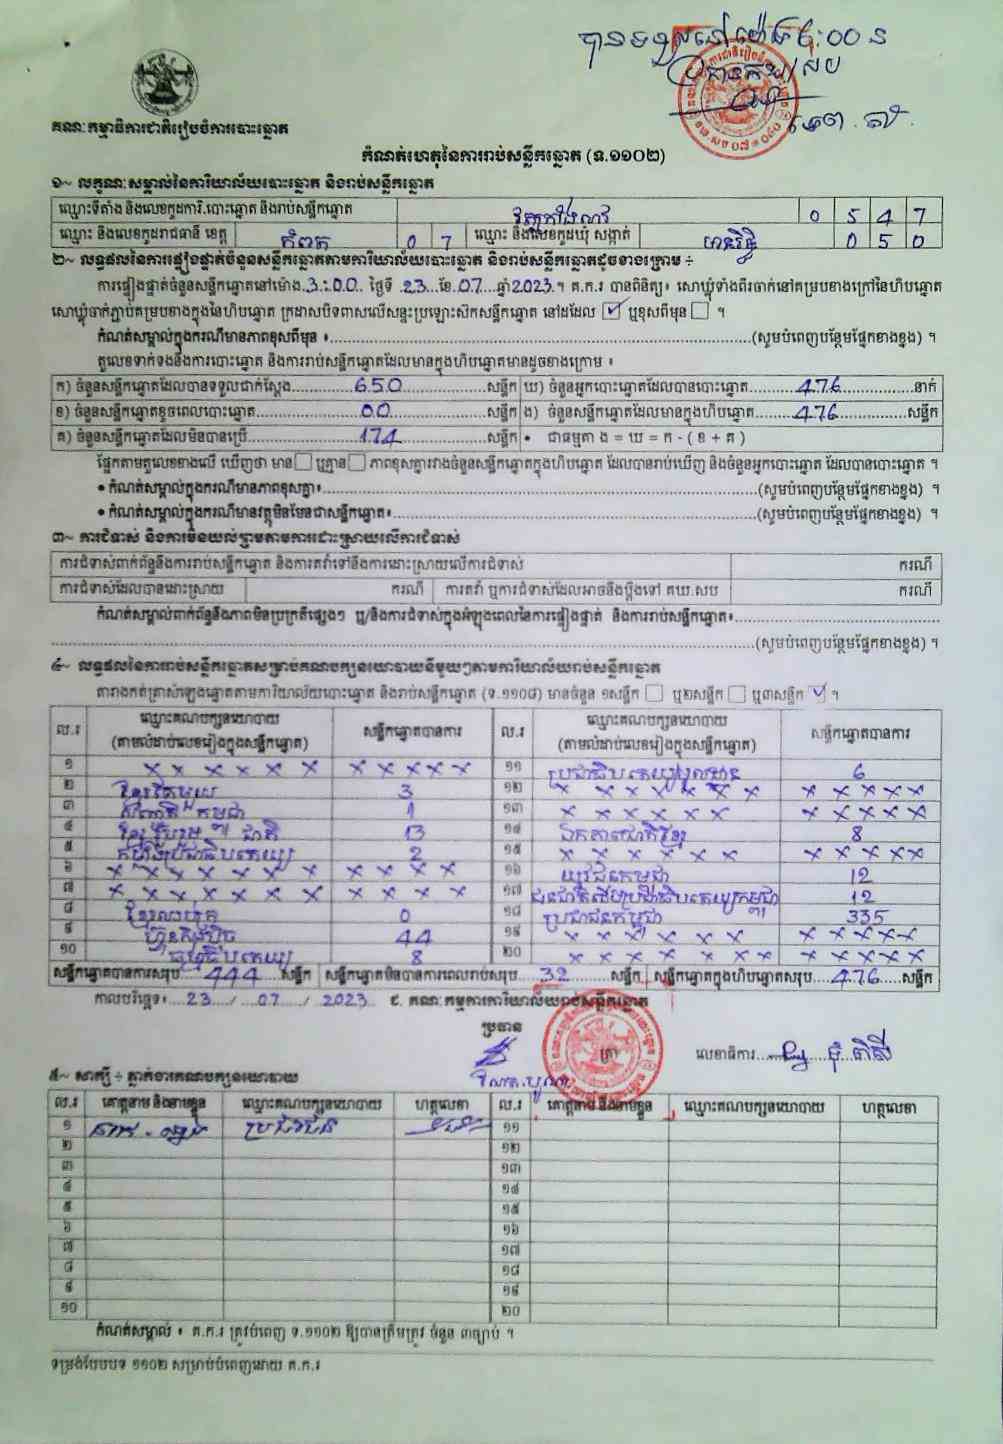 បានទទួលនៅម៉ោង 6:00 ន
គណៈកម្មាធិការជាតិរៀបចំការបោះឆ្នោត
កំណត់ហេតុនៃការរាប់សន្លឹកឆ្នោត (ទ.១១០២)
១~ លក្ខណៈសម្គាល់នៃការិយាល័យបោះឆ្នោត និងរាប់សន្លឹកឆ្នោត
ឈ្មោះទីតាំង និងលេខកូដការិ.បោះឆ្នោត និងរាប់សន្លឹកឆ្នោត 0 5 4 7
ឈ្មោះ និងលេខកូដរាជធានី ខេត្ត កំពត 0 7 ឈ្មោះ និងលេខកូដឃុំ សង្កាត់ មានរិទ្ធិ 0 5 0
២~ លទ្ធផលនៃការផ្ទៀងផ្ទាត់ចំនួនសន្លឹកឆ្នោតតាមការិយាល័យបោះឆ្នោត និងរាប់សន្លឹកឆ្នោតដូចខាងក្រោម ÷
ការផ្ទៀងផ្ទាត់ចំនួនសន្លឹកឆ្នោតនៅម៉ោង 3:00 ថ្ងៃទី 23 ខែ 07 ឆ្នាំ 2023 ។ គ.ក.រ បានពិនិត្យ៖ សោឃ្លុំទាំងពីរចាក់នៅគម្របខាងក្រៅនៃហិបឆ្នោត
សោឃ្លុំចាក់ភ្ជាប់គម្របខាងក្នុងនៃហិបឆ្នោត ក្រដាសបិទពាសលើសន្ទះប្រឡោះស៊កសន្លឹកឆ្នោត នៅដដែល ☑ ឬខុសពីមុន ☐ ។
កំណត់សម្គាល់ក្នុងករណីមានភាពខុសពីមុន ៖ (សូមបំពេញបន្ថែមផ្នែកខាងខ្នង) ។
តួលេខទាក់ទងនឹងការបោះឆ្នោត និងការរាប់សន្លឹកឆ្នោតដែលមានក្នុងហិបឆ្នោតមានដូចខាងក្រោម ៖
ក) ចំនួនសន្លឹកឆ្នោតដែលបានទទួលជាក់ស្តែង 650 សន្លឹក ឃ) ចំនួនអ្នកបោះឆ្នោតដែលបានបោះឆ្នោត 476 នាក់
ខ) ចំនួនសន្លឹកឆ្នោតខូចពេលបោះឆ្នោត 00 សន្លឹក ង) ចំនួនសន្លឹកឆ្នោតដែលមានក្នុងហិបឆ្នោត 476 សន្លឹក
គ) ចំនួនសន្លឹកឆ្នោតដែលមិនបានប្រើ 174 សន្លឹក • ជាធម្មតា ង = ឃ = ក - ( ខ + គ )
ផ្អែកតាមតួលេខខាងលើ ឃើញថា មាន ☐ ឬគ្មាន ☐ ភាពខុសគ្នារវាងចំនួនសន្លឹកឆ្នោតក្នុងហិបឆ្នោត ដែលបានរាប់ឃើញ និងចំនួនអ្នកបោះឆ្នោត ដែលបានបោះឆ្នោត ។
• កំណត់សម្គាល់ក្នុងករណីមានភាពខុសគ្នា៖ (សូមបំពេញបន្ថែមផ្នែកខាងខ្នង) ។
• កំណត់សម្គាល់ក្នុងករណីមានវត្ថុមិនមែនជាសន្លឹកឆ្នោត៖ (សូមបំពេញបន្ថែមផ្នែកខាងខ្នង) ។
៣~ ការជំទាស់ និងការមិនយល់ព្រមតាមការដោះស្រាយលើការជំទាស់
ការជំទាស់ពាក់ព័ន្ធនឹងការរាប់សន្លឹកឆ្នោត និងការតវ៉ាទៅនឹងការដោះស្រាយលើការជំទាស់ ករណី
ការជំទាស់ដែលបានដោះស្រាយ ករណី ការតវ៉ា ឬការជំទាស់ដែលអាចនឹងប្តឹងទៅ គឃ.សប ករណី
កំណត់សម្គាល់ពាក់ព័ន្ធនឹងភាពមិនប្រក្រតីផ្សេងៗ ឬ/និងការជំទាស់ក្នុងអំឡុងពេលនៃការផ្ទៀងផ្ទាត់ និងការរាប់សន្លឹកឆ្នោត៖
(សូមបំពេញបន្ថែមផ្នែកខាងខ្នង) ។
៤~ លទ្ធផលនៃការរាប់សន្លឹកឆ្នោតសម្រាប់គណបក្សនយោបាយនីមួយៗតាមការិយាល័យរាប់សន្លឹកឆ្នោត
តារាងកត់ត្រាសំឡេងឆ្នោតតាមការិយាល័យបោះឆ្នោត និងរាប់សន្លឹកឆ្នោត (ទ.១១០៨) មានចំនួន ១សន្លឹក ☐ ឬ២សន្លឹក ☐ ឬ៣សន្លឹក ☑ ។
ល.រ ឈ្មោះគណបក្សនយោបាយ សន្លឹកឆ្នោតបានការ ល.រ ឈ្មោះគណបក្សនយោបាយ សន្លឹកឆ្នោតបានការ
(តាមលំដាប់លេខរៀងក្នុងសន្លឹកឆ្នោត) (តាមលំដាប់លេខរៀងក្នុងសន្លឹកឆ្នោត)
១ x x x x x x x x x x x ១១ ប្រជាធិបតេយ្យមូលដ្ឋាន 6
២ ខ្មែរតែមួយ 3 ១២ x x x x x x x x x x x x
៣ សញ្ជាតិកម្ពុជា 1 ១៣ x x x x x x x x x x x
៤ ខ្មែររួបរួមជាតិ 13 ១៤ ឯកភាពជាតិខ្មែរ 8
៥ កម្លាំងប្រជាធិបតេយ្យ 2 ១៥ x x x x x x x x x x x
៦ x x x x x x x x x x x x ១៦ យុវជនកម្ពុជា 12
៧ x x x x x x x x x x x x ១៧ ជនជាតិដើមប្រជាធិបតេយ្យកម្ពុជា 12
៨ ខ្មែរឈប់ក្រ 0 ១៨ ប្រជាជនកម្ពុជា 335
៩ ហ្វ៊ុនស៊ិនប៉ិច 44 ១៩ x x x x x x x x x x x
១០ ធម្មាធិបតេយ្យ 8 ២០ x x x x x x x x x x x
សន្លឹកឆ្នោតបានការសរុប 444 សន្លឹក សន្លឹកឆ្នោតមិនបានការពេលរាប់សរុប 32 សន្លឹក សន្លឹកឆ្នោតក្នុងហិបឆ្នោតសរុប 476 សន្លឹក
កាលបរិច្ឆេទ៖ 23 / 07 / 2023 ជ. គណៈកម្មការការិយាល័យរាប់សន្លឹកឆ្នោត
ប្រធាន
ត្រា
លេខាធិការ
៥~ សាក្សី ÷ ភ្នាក់ងារគណបក្សនយោបាយ
ល.រ គោត្តនាម និងនាមខ្លួន ឈ្មោះគណបក្សនយោបាយ ហត្ថលេខា ល.រ គោត្តនាម និងនាមខ្លួន ឈ្មោះគណបក្សនយោបាយ ហត្ថលេខា
១ ប្រជាជន ១១
២ ១២
៣ ១៣
៤ ១៤
៥ ១៥
៦ ១៦
៧ ១៧
៨ ១៨
៩ ១៩
១០ ២០
កំណត់សម្គាល់ ៖ គ.ក.រ ត្រូវបំពេញ ទ.១១០២ ឱ្យបានត្រឹមត្រូវ ចំនួន ៣ច្បាប់ ។
ទម្រង់បែបបទ ១១០២ សម្រាប់បំពេញដោយ គ.ក.រ